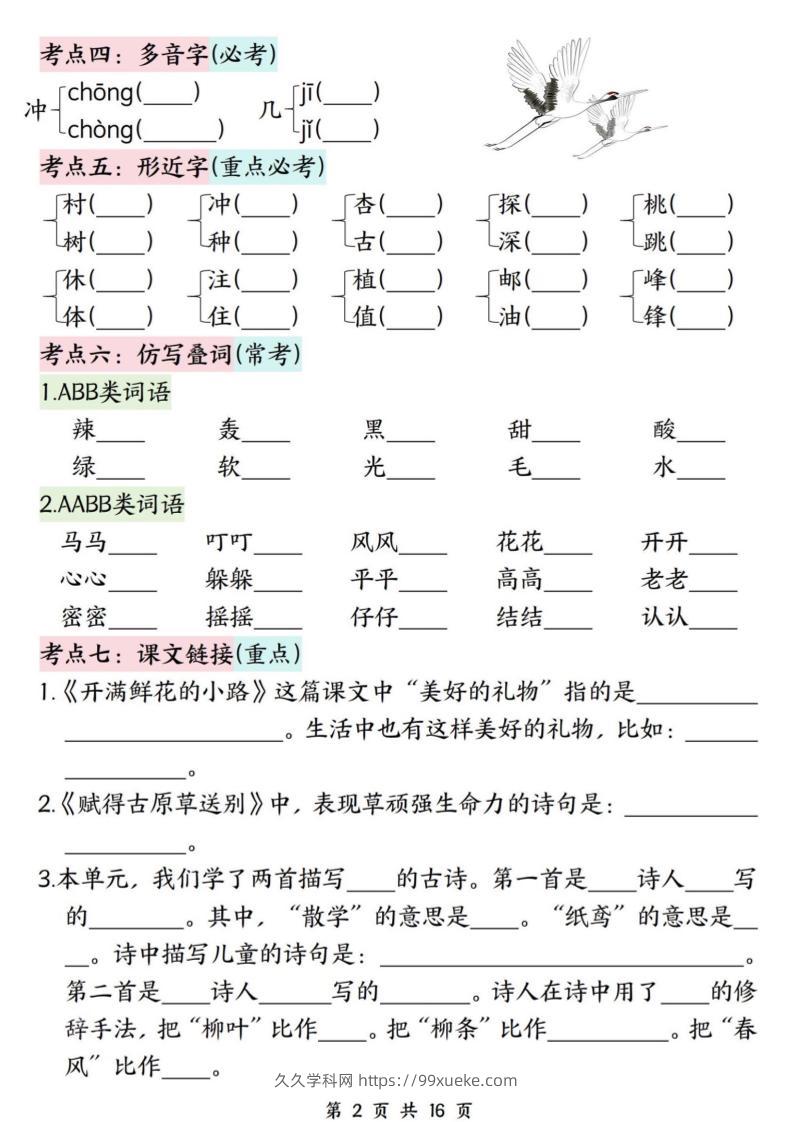 考点四：多音字(必考)
冲 chōng(____) 几 jī(____)
chòng(______) jǐ(____)
考点五：形近字(重点必考)
村(____) 冲(____) 杏(____) 探(____) 桃(____)
树(____) 种(____) 古(____) 深(____) 跳(____)
休(____) 注(____) 植(____) 邮(____) 峰(____)
体(____) 住(____) 值(____) 油(____) 锋(____)
考点六：仿写叠词(常考)
1.ABB类词语
辣____ 轰____ 黑____ 甜____ 酸____
绿____ 软____ 光____ 毛____ 水____
2.AABB类词语
马马____ 叮叮____ 风风____ 花花____ 开开____
心心____ 躲躲____ 平平____ 高高____ 老老____
密密____ 摇摇____ 仔仔____ 结结____ 认认____
考点七：课文链接(重点)
1.《开满鲜花的小路》这篇课文中“美好的礼物”指的是__________
__________________。生活中也有这样美好的礼物，比如：______
__________。
2.《赋得古原草送别》中，表现草顽强生命力的诗句是：___________
__________。
3.本单元，我们学了两首描写____的古诗。第一首是____诗人____写
的________。其中，“散学”的意思是____。“纸鸢”的意思是__
__。诗中描写儿童的诗句是：______________________________。
第二首是____诗人______写的________。诗人在诗中用了____的修
辞手法，把“柳叶”比作____。把“柳条”比作__________。把“春
风”比作____。
久久学科网 https://99xueke.com
第 2 页 共 16 页